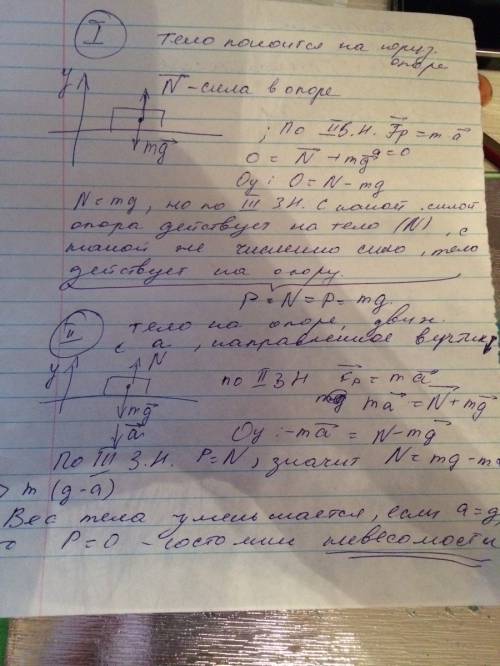 I Тело покоится на гориз.
опоре
y N - сила в опоре
; По II З.Н. Fр = m a
mg a = 0
0 = N + mg
Oy: 0 = N - mg
N = mg, но по III З.Н. С какой силой
опора действует на тело (N), с
такой же численно силой, тело
действует на опору.
P = N = P = mg.
II тело на опоре, движ.
с a, направленное вертик
y N по II З Н Fр = m a
mg ma = N + mg
a Oy: -ma = N - mg
По III З.Н. P = N, значит N = mg - m
m (g - a)
Вес тела уменьшается, если a = g
P = 0 - состоянии невесомости